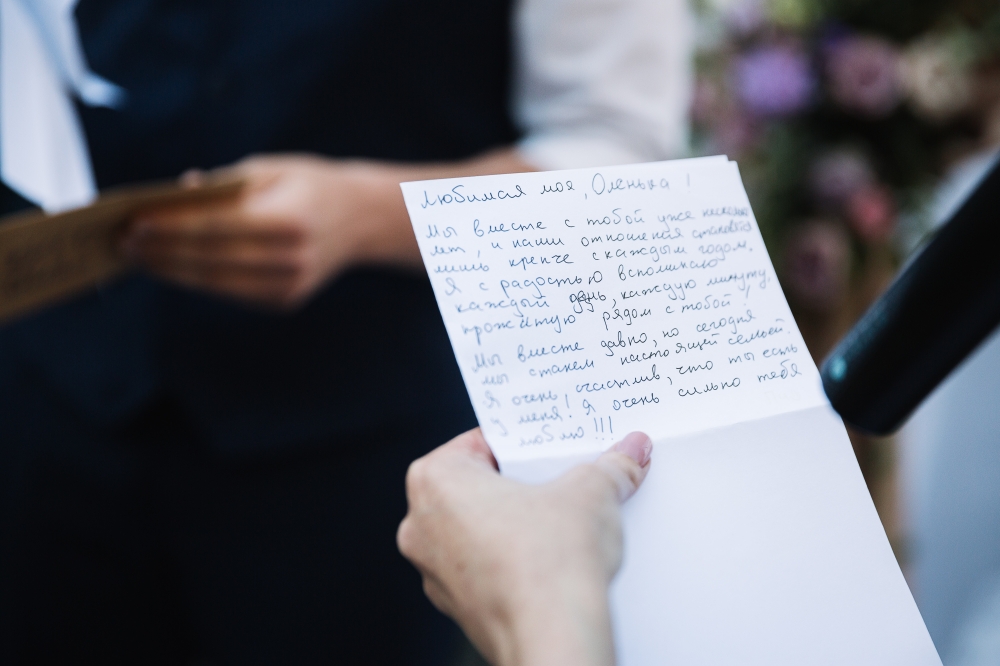 Любимая моя, Оленька!
Мы вместе с тобой уже несколько
лет, и наши отношения становятся
лишь крепче с каждым годом.
Я с радостью вспоминаю
каждый день, каждую минуту,
прожитую рядом с тобой!
Мы вместе давно, но сегодня
мы станем настоящей семьей.
Я очень счастлив, что ты есть
у меня! Я очень сильно тебя
люблю!!!